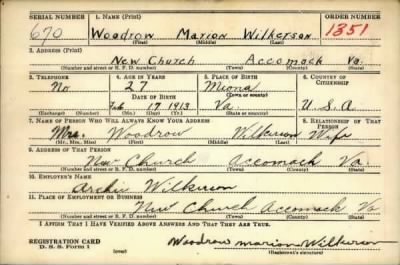 SERIAL NUMBER 1. NAME (Print) ORDER NUMBER
670 Woodrow Marion Wilkerson 1351
(First) (Middle) (Last)
2. ADDRESS (Print)
New Church Accomack Va.
(Number and street or R. F. D. number) (Town) (County) (State)
3. TELEPHONE 4. AGE IN YEARS 5. PLACE OF BIRTH 6. COUNTRY OF CITIZENSHIP
No 27 Miona
DATE OF BIRTH (Town or county)
Feb 17 1913 Va. U.S.A
(Exchange) (Number) (Mo.) (Day) (Yr.) (State or country)
7. NAME OF PERSON WHO WILL ALWAYS KNOW YOUR ADDRESS 8. RELATIONSHIP OF THAT PERSON
Mrs. Woodrow Wilkerson Wife
(Mr., Mrs., Miss) (First) (Middle) (Last)
9. ADDRESS OF THAT PERSON
New Church Accomack Va.
(Number and street or R. F. D. number) (Town) (County) (State)
10. EMPLOYER'S NAME
Archie Wilkerson
11. PLACE OF EMPLOYMENT OR BUSINESS
New Church Accomack Va
(Number and street or R. F. D. number) (Town) (County) (State)
I AFFIRM THAT I HAVE VERIFIED ABOVE ANSWERS AND THAT THEY ARE TRUE.
REGISTRATION CARD
D. S. S. Form 1 (over) Woodrow marion Wilkerson
(Registrant's signature)